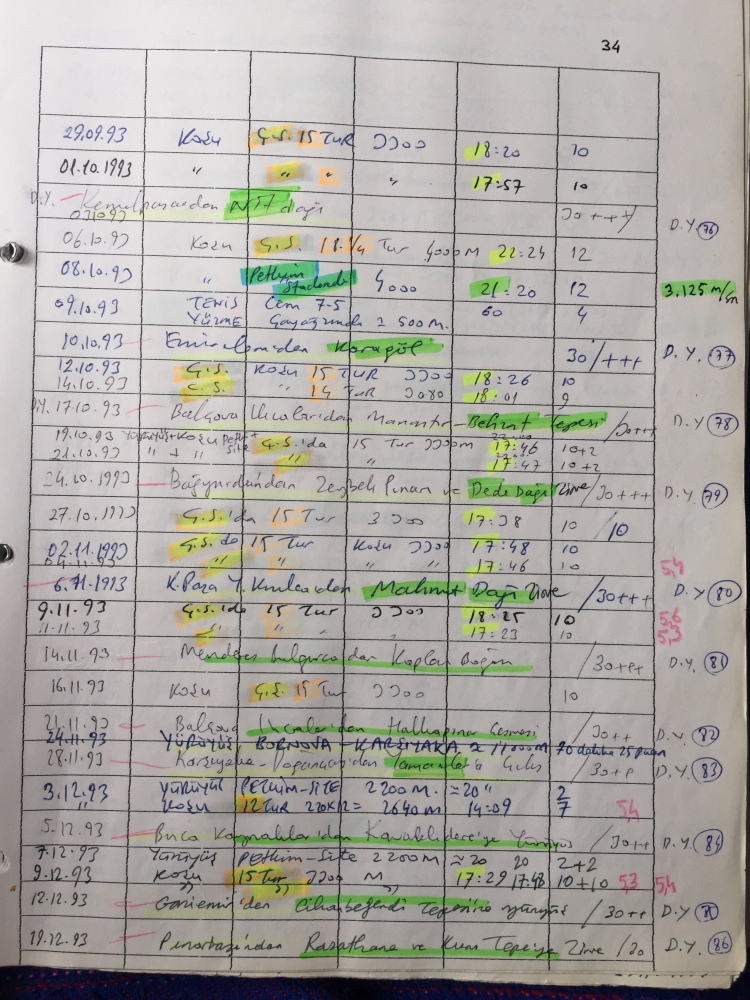 34
29.09.93 Koşu G.S. 15 Tur 3300 18:20 10
01.10.1993 " " " " 17:57 10
D.Y. Kemalpaşa'dan Nif dağı 30+++ D.Y. 76
03.10.93
06.10.93 Koşu G.S. Tur 4000 M 22:24 12
08.10.93 " Petkim Stadında 4000 21:20 12 3.125 m/sn
09.10.93 TENİS Cem 7-5 60 4
YÜZME 500 M.
10.10.93 Karagöl 30/+++ D.Y. 77
12.10.93 G.S. Koşu 15 TUR 3300 18:26 10
14.10.93 G.S. " 14 TUR 3080 18:01 9
D.Y. 17.10.93 Balçova Ilıcaları'dan Behzat Tepesi /30++ D.Y 78
19.10.93 Yürüyüş+Koşu G.S.'da 15 Tur 3300m 17:46 10+2
21.10.93 " + " " " 17:47 10+2
24.10.1993 Zeybek Pınarı ve Dede Dağı Zirve /30+++ D.Y. 79
27.10.1993 G.S.'da 15 Tur 3300 17:38 10 /10
02.11.1993 G.S.de 15 Tur Koşu 3300 17:48 10
04.11.93 " " 17:46 10 5,4
6.11.1993 K.Paşa Mahmut Dağı Zirve /30+++ D.Y 80
9.11.93 G.S.'da 15 Tur 3300 18:25 10 5,6
11.11.93 " " " 17:23 10 5,3
14.11.93 Menderes Kaplan /30++ D.Y. 81
16.11.93 Koşu G.S. 15 Tur 3300 10
21.11.93 Balçova Ilıcaları'dan Halkapınar Çeşmesi /30++ D.Y. 82
24.11.93 YÜRÜYÜŞ BORNOVA - KARŞIYAKA ≈ 11000M 70 dakika 25 puan
28.11.93 Karşıyaka - 30++ D.Y. 83
3.12.93 YÜRÜYÜŞ PETKİM-SİTE 2200 M. ≈20" 2
" KOŞU 12 TUR 220x12= 2640 M 14:09 7 5,4
5.12.93 Buca Kaynaklar'dan Kavaklıdere'ye Yürüyüş /30++ D.Y. 84
7.12.93 Yürüyüş Petkim-Site 2200 M ≈20 20 2+2
9.12.93 Koşu 15 Tur 3300 M 17:29 17:48 10+10 5,3 5,4
12.12.93 Gaziemir'den Cihanbeğendi Tepesine yürüyüş /30++ D.Y
19.12.93 Pınarbaşı'ndan Rasathane ve Kum Tepe'ye Zirve /30 D.Y. 86